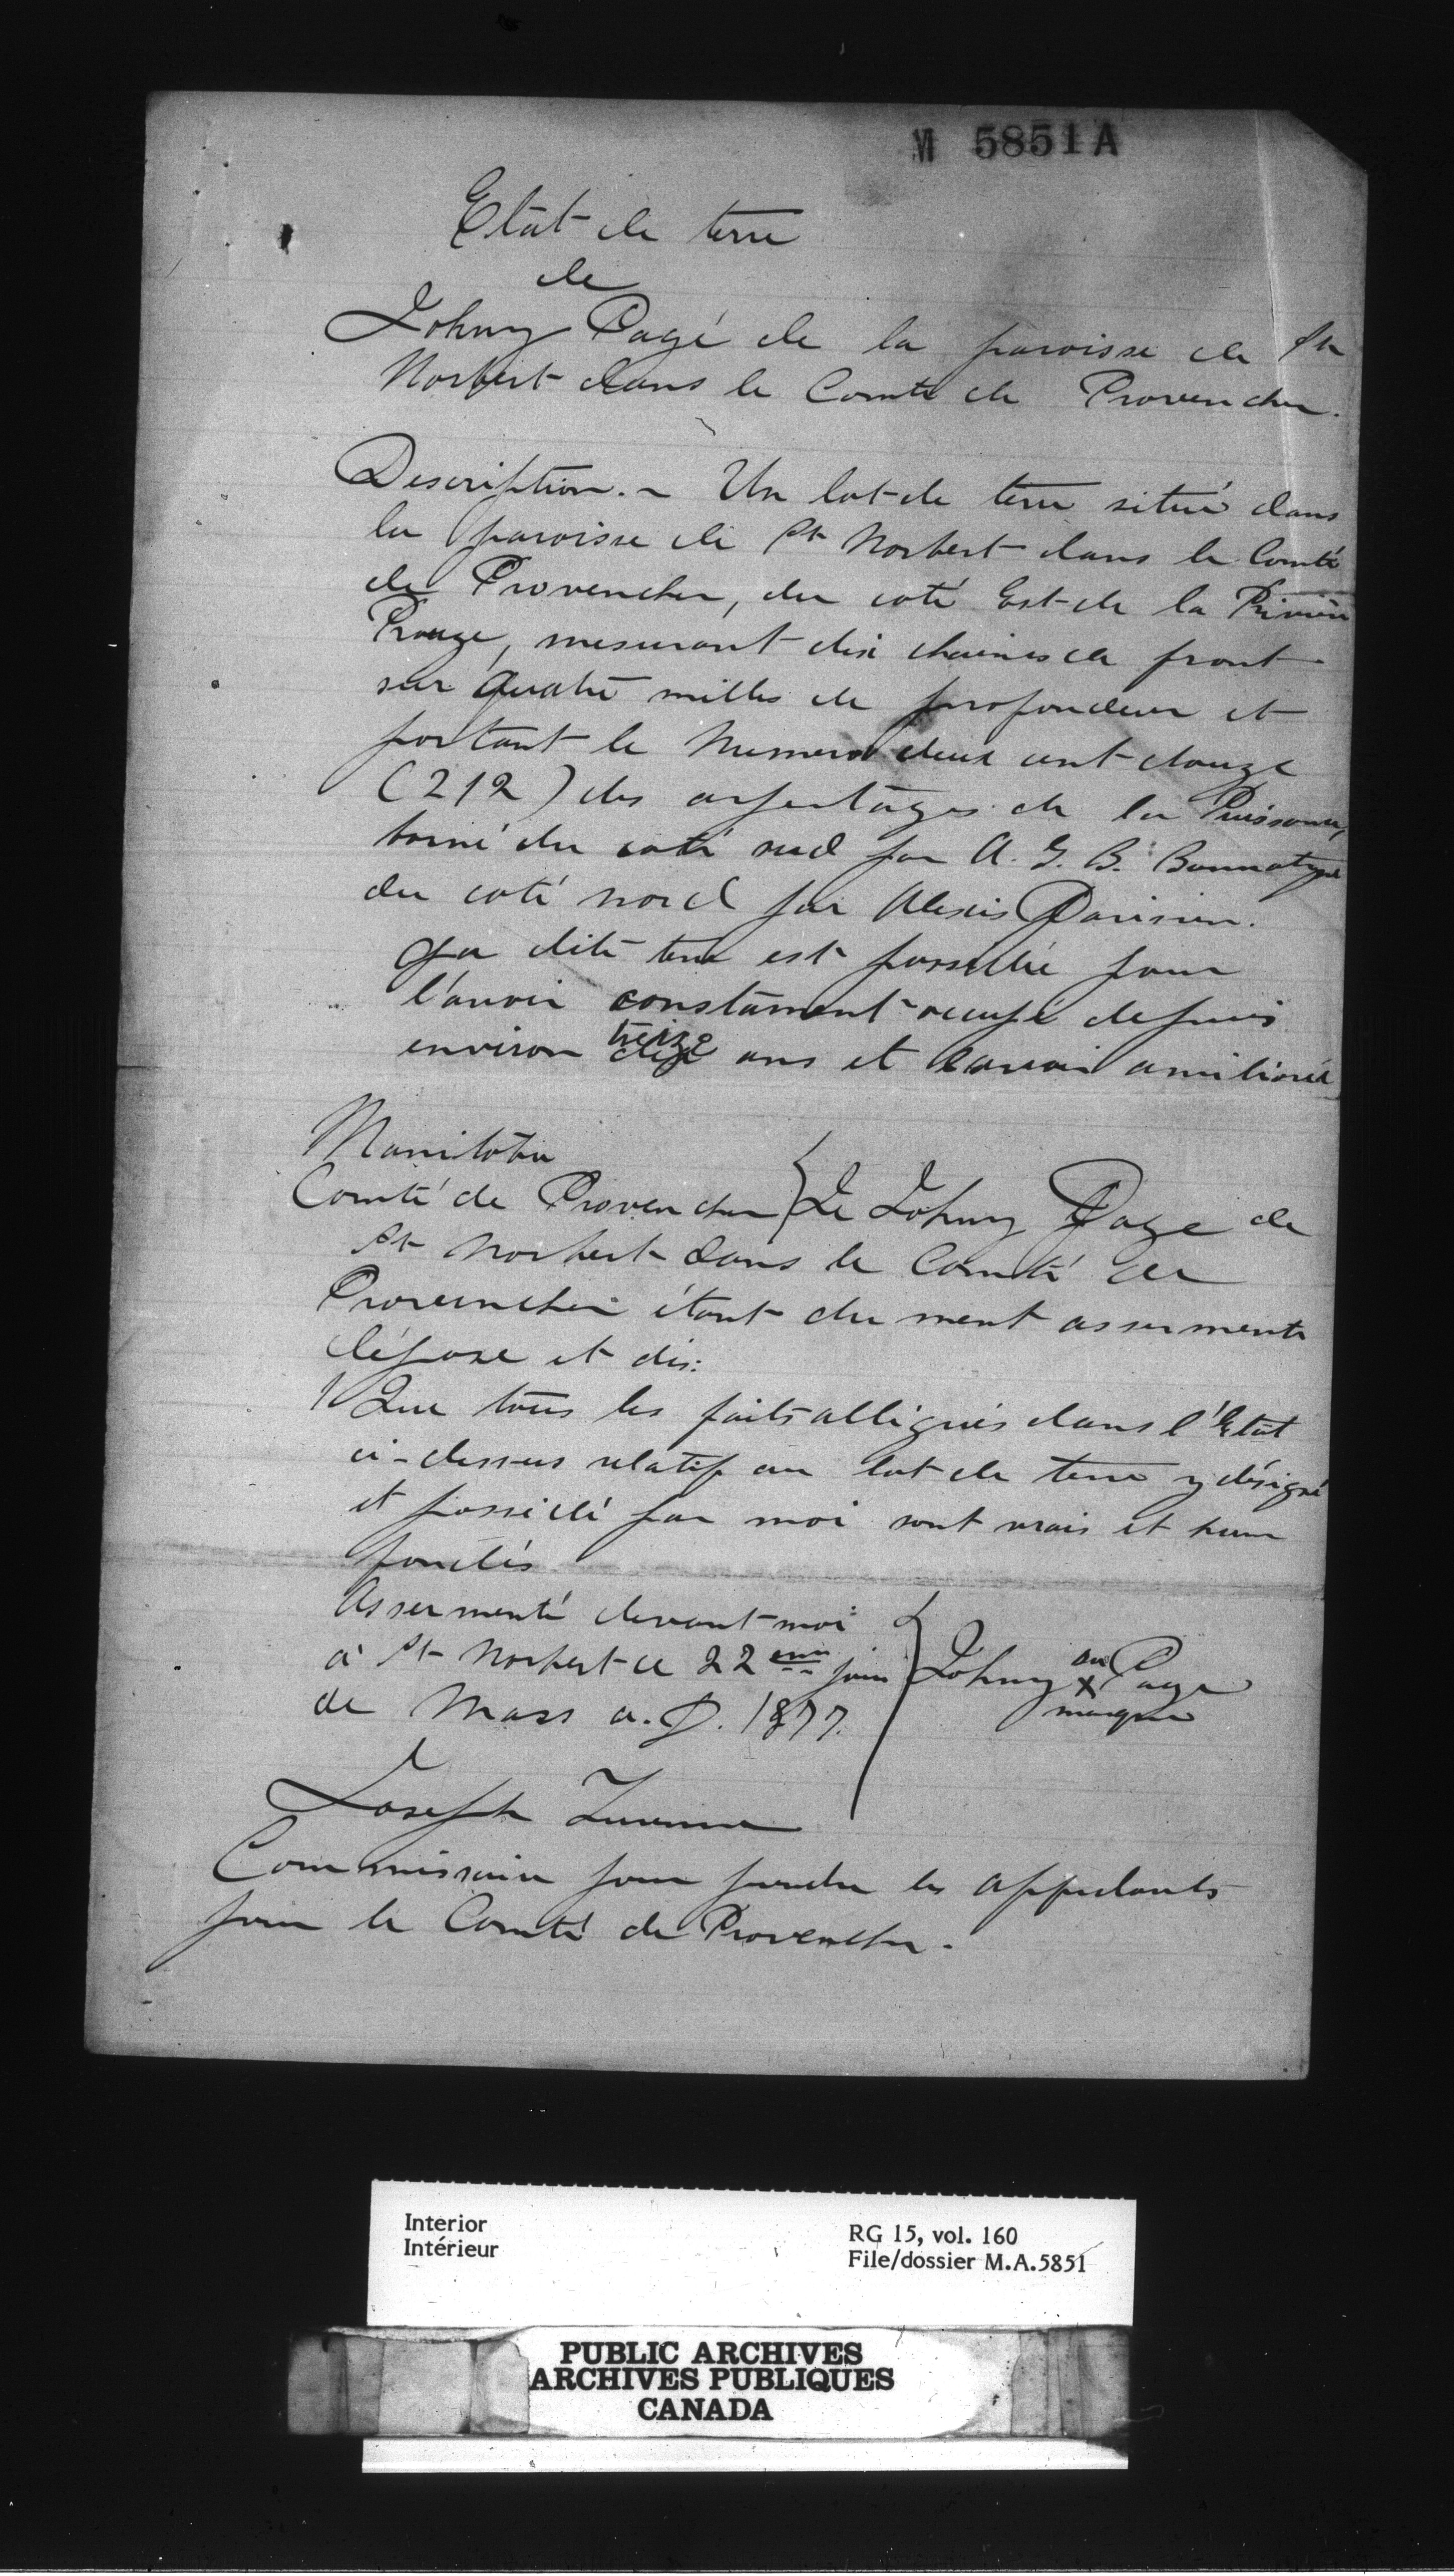 M 5851A
Etat de terre
de
Johny Pagé de la paroisse de St
Norbert dans le Comté de Provencher.
Description. - Un lot de terre situé dans
la paroisse de St Norbert dans le Comté
de Provencher, du coté Est de la Rivière
Rouge, mesurant dix chaines de front
sur quatre milles de profondeur et
portant le Numero deux cent douze
(212) des arpentages de la Puissance,
borné du coté sud par A. G. B. Bannatyne
du coté nord par Alexis Parisien.
La dite terre est possédée pour
l'avoir constament occupé depuis
environ treize ans et l'avoir amélioré
Manitoba
Comté de Provencher } Je Johny Page de
St Norbert dans le Comté de
Provencher étant du ment assermenté
dépose et dis:
1 Que tous les faits allégués dans l'Etat
ci-dessus relatif au lot de terre y désigné
et possédé par moi sont vrais et bien
fondés
Assermenté devant moi
à St Norbert ce 22 eme juin } Johny sa X marque Page
de Mars A.D. 1877.
Joseph Turenne
Commissaire pour prendre les affidavits
pour le Comté de Provencher.
Interior
Intérieur
RG 15, vol. 160
File/dossier M.A.5851
PUBLIC ARCHIVES
ARCHIVES PUBLIQUES
CANADA